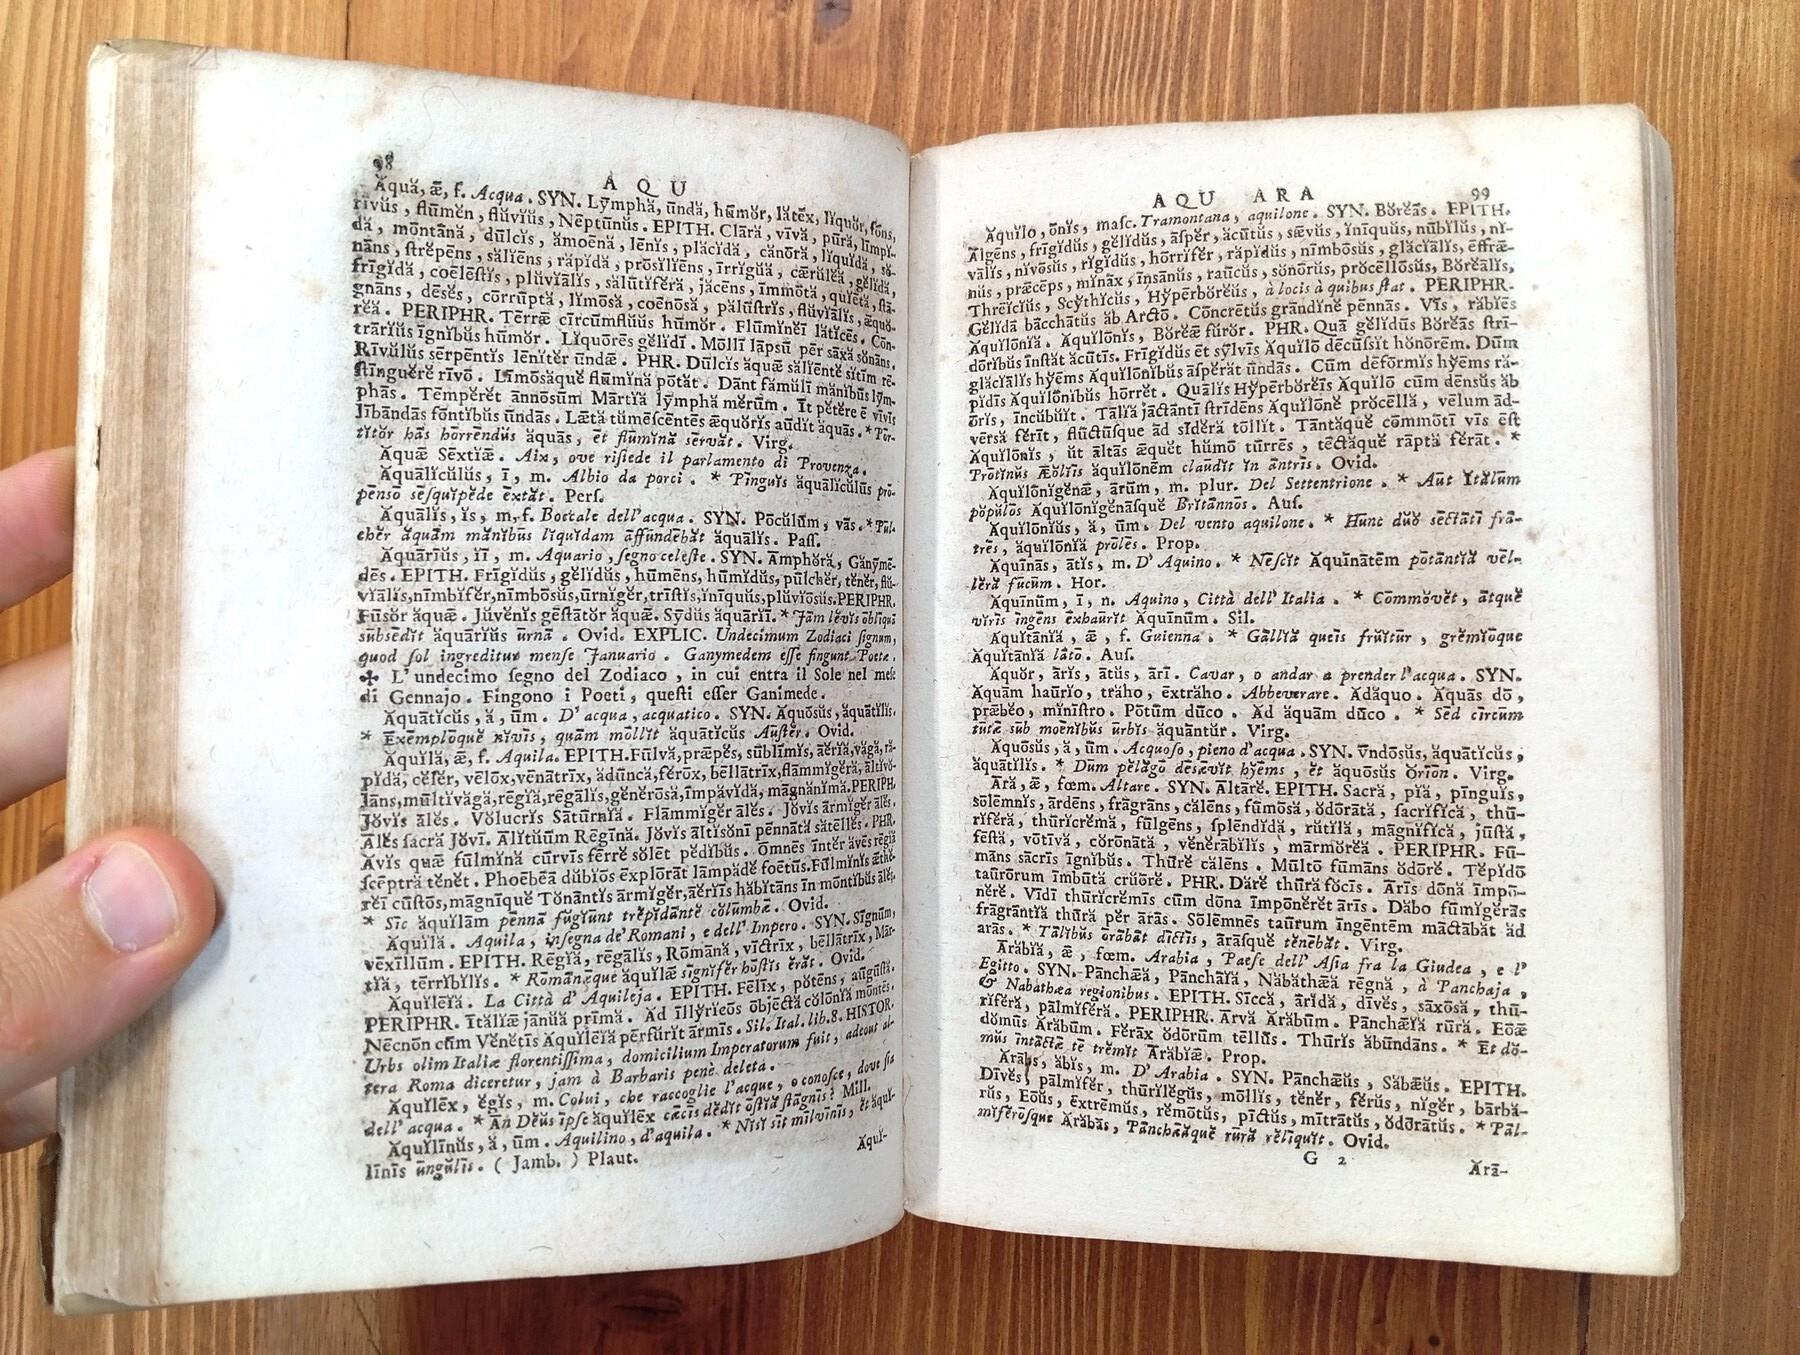 98
A Q U
Ăquă, ǣ, f. Acqua. SYN. Ly̆mphă, ūndă, hūmŏr, lătĕx, lĭquŏr, fōns,
rīvŭs, flūmĕn, flŭvĭŭs, Nēptūnŭs. EPITH. Clāră, vīvă, pūră, līmpĭ-
dă, mōntānă, dūlcĭs, ămoēnă, lēnĭs, plăcĭdă, cănōră, lĭquĭdă, sŏ-
nāns, strĕpēns, sălĭēns, răpĭdă, prōsĭlĭēns, īrrĭgŭă, cærŭlĕă, gĕlĭdă,
frīgĭdă, coēlēſtĭs, plŭvĭālĭs, sălūtĭfĕră, jăcēns, īmmōtă, quĭētă, ſtā-
gnāns, dēsĕs, cōrrūptă, lĭmōsă, coēnōsă, pălūſtrĭs, flŭvĭālĭs, æquŏ-
rĕă. PERIPHR. Tērræ cīrcūmflŭŭs hūmŏr. Flūmĭnĕī lătĭcēs. Cōn-
trārĭŭs īgnĭbŭs hūmŏr. Lĭquōrēs gĕlĭdī. Mōllī lāpsū pĕr sāxă sŏnāns.
Rīvŭlŭs sērpēntĭs lēnĭtĕr ūndæ. PHR. Dūlcĭs ăquæ sălĭēntĕ sĭtĭm rē-
ſtīnguĕrĕ rīvō. Līmōsăquĕ flūmĭnă pōtăt. Dānt fămŭlī mănĭbŭs ly̆m-
phās. Tēmpĕrĕt ānnōsŭm Mārtĭă ly̆mphă mĕrŭm. Īt pĕtĕrĕ ē vīvīs
lībāndās fōntĭbŭs ūndās. Lætă tŭmēſcēntēs æquŏrĭs aūdĭt ăquās. * Pōr-
tĭtŏr hās hōrrēndŭs ăquās, ĕt flūmĭnă sērvăt. Virg.
Ăquæ Sēxtĭæ. Aix, ove riſiede il parlamento di Provenza.
Ăquālĭcŭlŭs, ī, m. Albio da porci. * Pīnguĭs ăquālĭcŭlŭs prō-
pēnsō sēſquĭpĕdĕ ēxtăt. Perſ.
Ăquālĭs, ĭs, m, f. Boccale dell'acqua. SYN. Pōcŭlŭm, vās. * Pūl-
chĕr ăquăm mănĭbŭs lĭquĭdam āffūndēbăt ăquālĭs. Paſſ.
Ăquārĭŭs, ĭī, m. Aquario, ſegno celeſte. SYN. Āmphŏră, Gănymē-
dēs. EPITH. Frīgĭdŭs, gĕlĭdŭs, hūmēns, hūmĭdŭs, pūlchĕr, tĕnĕr, flŭ-
vĭālĭs, nīmbĭfĕr, nīmbōsŭs, ūrnĭgĕr, trīſtĭs, ĭnīquŭs, plŭvĭōsŭs. PERIPHR.
Fūsŏr ăquæ. Jŭvĕnĭs gēſtātŏr ăquæ. Sy̆dŭs ăquārĭī. * Jām lĕvĭs ōblīquā
sūbsēdĭt ăquārĭŭs ūrnā. Ovid. EXPLIC. Undecimum Zodiaci ſignum,
quod ſol ingreditur menſe Januario. Ganymedem eſſe fingunt Poetæ.
✠ L'undecimo ſegno del Zodiaco, in cui entra il Sole nel meſe
di Gennajo. Fingono i Poeti, queſti eſſer Ganimede.
Ăquātĭcŭs, ă, ūm. D'acqua, acquatico. SYN. Ăquōsŭs, ăquātĭlĭs.
* Ēxēmplōquĕ nĭvĭs, quăm mōllĭt ăquātĭcŭs Auſtĕr. Ovid.
Ăquĭlă, ǣ, f. Aquila. EPITH. Fūlvă, præpĕs, sūblīmĭs, āĕrĭă, văgă, ră-
pĭdă, cĕlĕr, vēlōx, vēnātrīx, ădūncă, fĕrōx, bēllātrīx, flāmmĭgĕră, āltĭvŏ-
lāns, mūltĭvăgă, rēgĭă, rēgālĭs, gĕnĕrōsă, īmpăvĭdă, māgnănĭmă. PERIPH.
Jŏvĭs ālĕs. Vŏlŭcrĭs Sātūrnĭă. Flāmmĭgĕr ālĕs. Jŏvĭs ārmĭgĕr ālĕs.
Ālĕs ſacră Jŏvī. Ālĭtŭŭm Rēgīnă. Jŏvĭs āltĭsŏnī pēnnātă sătēllĕs. PHR.
Ăvĭs quæ fūlmĭnă cūrvĭs fērrĕ sŏlĕt pĕdĭbŭs. Ōmnēs īntĕr ăvēs rēgĭă
ſcēptră tĕnĕt. Phoēbēă dŭbĭōs ēxplōrăt lāmpădĕ foētŭs. Fūlmĭnĭs æthĕ-
rĕī cūſtōs, māgnīquĕ Tŏnāntĭs ārmĭgĕr, āĕrĭīs hăbĭtāns ĭn mōntĭbŭs ālĕs.
* Sīc ăquĭlăm pēnnā fŭgĭūnt trĕpĭdāntĕ cŏlūmbæ. Ovid.
Ăquĭlă. Aquila, inſegna de' Romani, e dell' Impero. SYN. Sīgnŭm,
vēxīllŭm. EPITH. Rēgĭă, rēgālĭs, Rōmānă, vīctrīx, bēllātrīx, Mār-
tĭă, tērrĭbĭlĭs. * Rōmānæque ăquĭlæ sīgnĭfĕr hōſtĭs ĕrăt. Ovid.
Ăquĭlēĭă. La Città d' Aquileja. EPITH. Fēlīx, pŏtēns, aūgūſtă.
PERIPHR. Ītălĭæ jānŭă prīmă. Ăd Īlly̆rĭcōs ōbjēctă cŏlōnĭă mōntēs.
Nēcnōn cŭm Vĕnĕtīs Ăquĭlēĭă pērfŭrĭt ārmīs. Sil. Ital. lib. 8. HISTOR.
Urbs olim Italiæ florentiſſima, domicilium Imperatorum fuit, adeout al-
tera Roma diceretur, jam à Barbaris penè deleta.
Ăquĭlēx, ĕgĭs, m. Colui, che raccoglie l'acque, o conoſce, dove ſia
dell' acqua. * Ān Dĕŭs īpſe ăquĭlēx cæcīs dĕdĭt ōſtĭă ſtāgnīs? Mill.
Ăquĭlīnŭs, ă, ūm. Aquilino, d'aquila. * Nĭsī sīt mīlvīnīs, ĕt ăquĭ-
līnīs ūngŭlīs. ( Jamb. ) Plaut.
Ăquĭ-
AQU ARA
99
Ăquĭlo, ōnĭs, maſc. Tramontana, aquilone. SYN. Bŏrĕās. EPITH.
Ālgēns, frīgĭdŭs, gĕlĭdŭs, āſpĕr, ăcūtŭs, sævŭs, ĭnīquŭs, nūbĭlŭs, nĭ-
vālĭs, nĭvōsŭs, rĭgĭdŭs, hōrrĭfĕr, răpĭdŭs, nīmbōsŭs, glăcĭālĭs, ēffræ-
nŭs, præcēps, mĭnāx, īnsānŭs, raūcŭs, sŏnōrŭs, prŏcēllōsŭs, Bŏrĕālĭs,
Thrēĭcĭŭs, Scy̆thĭcŭs, Hy̆pērbŏrĕŭs, à locis à quibus flat. PERIPHR.
Gĕlĭdā bācchātŭs ăb Arctō. Cōncrētŭs grāndĭnĕ pēnnās. Vīs, răbĭēs
Ăquĭlōnĭă. Ăquĭlōnĭs, Bŏrĕæ fŭrŏr. PHR. Quă gĕlĭdŭs Bŏrĕās ſtrī-
dōrĭbŭs īnſtăt ăcūtīs. Frīgĭdŭs ēt sy̆lvīs Ăquĭlō dēcūſſĭt hŏnōrĕm. Dŭm
glăcĭālĭs hy̆ēms Ăquĭlōnĭbŭs āſpĕrăt ūndās. Cŭm dēfōrmĭs hy̆ēms ră-
pĭdīs Ăquĭlōnĭbŭs hōrrĕt. Quālĭs Hy̆pērbŏrĕīs Ăquĭlō cŭm dēnsŭs ăb
ōrīs, īncŭbŭĭt. Tālĭă jāctāntī ſtrīdēns Ăquĭlōnĕ prŏcēllă, vēlum ād-
vērsă fĕrĭt, flūctūſque ād sīdĕră tōllĭt. Tāntăquĕ cōmmōtī vīs ēſt
Ăquĭlōnĭs, ŭt āltās æquĕt hŭmō tūrrēs, tēctăquĕ rāptă fĕrăt. *
Prōtĭnŭs Æŏlĭīs ăquĭlōnĕm claūdĭt ĭn āntrīs. Ovid.
Ăquĭlōnĭgĕnæ, ārŭm, m. plur. Del Settentrione. * Aūt Ītălŭm
pŏpŭlōs Ăquĭlōnĭgĕnāſquĕ Brĭtānnōs. Auſ.
Ăquĭlōnĭŭs, ă, ūm. Del vento aquilone. * Hunc dŭo sēctātī frā-
trēs, ăquĭlōnĭă prōlēs. Prop.
Ăquīnās, ātĭs, m. D' Aquino. * Nēſcĭt Ăquīnātĕm pōtāntĭă vēl-
lĕră fūcŭm. Hor.
Ăquīnŭm, ī, n. Aquino, Città dell' Italia. * Cōmmŏvĕt, ātquĕ
vĭrīs īngēns ēxhaūrĭt Ăquīnŭm. Sil.
Ăquĭtānĭă, æ, f. Guienna. * Gāllĭă queīs frŭĭtŭr, grĕmĭōque
Ăquĭtānĭă lātō. Auſ.
Ăquŏr, ārĭs, ātŭs, ārī. Cavar, o andar a prender l'acqua. SYN.
Ăquăm haūrĭo, trăho, ēxtrăho. Abbeverare. Ădăquo. Ăquās dō,
præbĕo, mĭnīſtro. Pōtŭm dūco. Ăd ăquăm dūco. * Sēd cīrcŭm
tūtæ sŭb moēnĭbŭs ūrbĭs ăquāntŭr. Virg.
Ăquōsŭs, ă, ūm. Acquoſo, pieno d'acqua. SYN. Vndōsŭs, ăquātĭcŭs,
ăquātĭlĭs. * Dŭm pĕlăgō dēsævĭt hy̆ēms, ĕt ăquōsŭs Ŏrīon. Virg.
Āră, æ, fœm. Altare. SYN. Āltārĕ. EPITH. Sacră, pĭă, pīnguĭs,
sōlēmnĭs, ārdēns, frāgrāns, călēns, fūmōsă, ŏdōrātă, ſacrĭfĭcă, thū-
rĭfĕră, thūrĭcrĕmă, fūlgēns, ſplēndĭdă, rŭtĭlă, māgnĭfĭcă, jūſtă,
fēſtă, vōtīvă, cŏrōnātă, vĕnĕrābĭlĭs, mārmŏrĕă. PERIPHR. Fū-
māns sācrĭs īgnĭbŭs. Thūrĕ călēns. Mūltō fūmāns ŏdōrĕ. Tĕpĭdō
taūrōrum īmbūtă crŭōrĕ. PHR. Dărĕ thūră fŏcīs. Ārīs dōnă īmpō-
nĕrĕ. Vīdī thūrĭcrĕmīs cŭm dōna īmpōnĕrĕt ārīs. Dăbo fūmĭgĕrās
frāgrāntĭă thūră pĕr ārās. Sōlēmnēs taūrum īngēntem māctābăt ăd
aras. * Tālĭbŭs ōrābăt dīctīs, ārāſquĕ tĕnēbăt. Virg.
Ărăbĭă, æ, fœm. Arabia, Paeſe dell' Aſia fra la Giudea, e l'
Egitto. SYN. Pānchæă, Pānchăĭă, Năbăthæă rēgnă, à Panchaja,
& Nabathæa regionibus. EPITH. Sīccă, ārĭdă, dīvĕs, sāxōsă, thū-
rĭfĕră, pālmĭfĕră. PERIPHR. Ārvă Ărăbŭm. Pānchæĭă rūră. Ēōæ
dŏmŭs Ărăbŭm. Fĕrāx ŏdōrŭm tēllŭs. Thūrĭs ăbūndāns. * Et dŏ-
mŭs īntāctæ tē trĕmĭt Ărăbĭæ. Prop.
Ărăbs, ăbĭs, m. D' Arabia. SYN. Pānchæŭs, Săbæŭs. EPITH.
Dīvĕs, pālmĭfĕr, thūrĭlĕgŭs, mōllĭs, tĕnĕr, fĕrŭs, nĭgĕr, bārbă-
rŭs, Ēōŭs, ēxtrēmŭs, rĕmōtŭs, pīctŭs, mītrātŭs, ŏdōrātŭs. * Pāl-
mĭfĕrōsque Ărăbās, Pānchæăquĕ rūră rĕlīquĭt. Ovid.
G 2
Ărā-